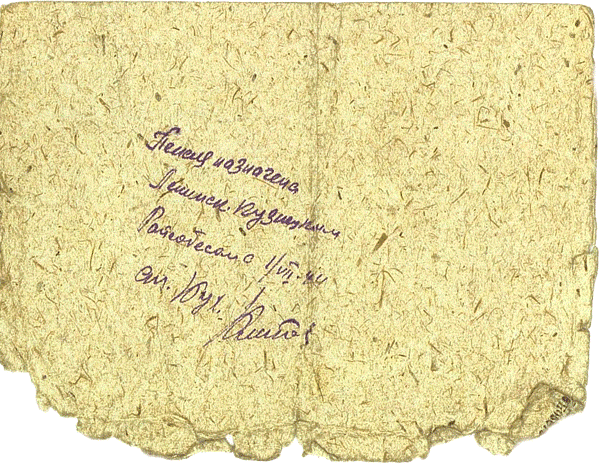 Пенсия назначена
Ленинск-Кузнецким
Райсобесом с 1/VII-44
ст. бух.